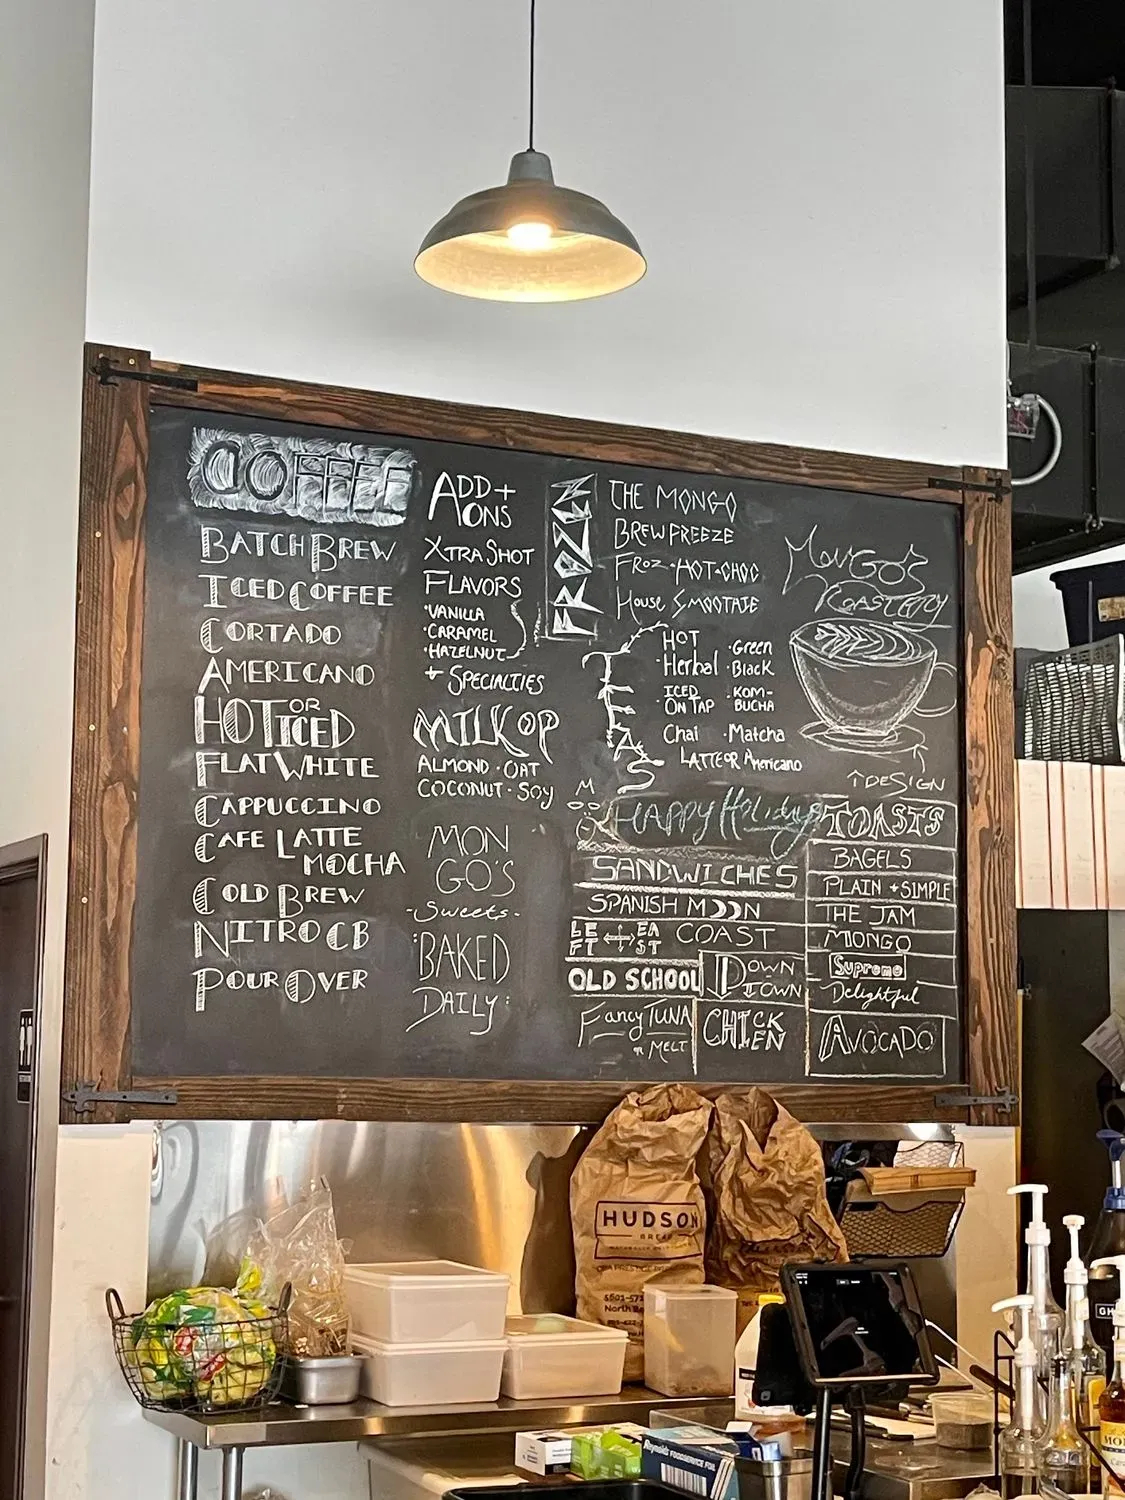 COFFEE
BATCH BREW
ICED COFFEE
CORTADO
AMERICANO
HOT OR ICED
FLAT WHITE
CAPPUCCINO
CAFE LATTE
MOCHA
COLD BREW
NITRO CB
POUR OVER
ADD +
ONS
XTRA SHOT
FLAVORS
·VANILLA
·CARAMEL
·HAZELNUT
+ SPECIALTIES
MILK OP
ALMOND · OAT
COCONUT · SOY
MON
GO'S
-Sweets-
BAKED
DAILY:
FROZEN
THE MONGO
BREW FREEZE
FROZ-HOT-CHOC
House SMOOTHIE
HOT
·Herbal
·Green
·Black
ICED
·ON TAP
·KOM-
BUCHA
Chai ·Matcha
LATTE OR Americano
MONGO'S
ROASTERY
↑DESIGN
HAPPY Holidays
SANDWICHES
SPANISH MOON
LEFT EAST COAST
OLD SCHOOL
DOWN
TOWN
Fancy TUNA
OR MELT
CHICKEN
TOASTS
BAGELS
PLAIN + SIMPLE
THE JAM
MONGO
Supreme
Delightful
AVOCADO
HUDSON
BREAD
Reynolds FOODSERVICE